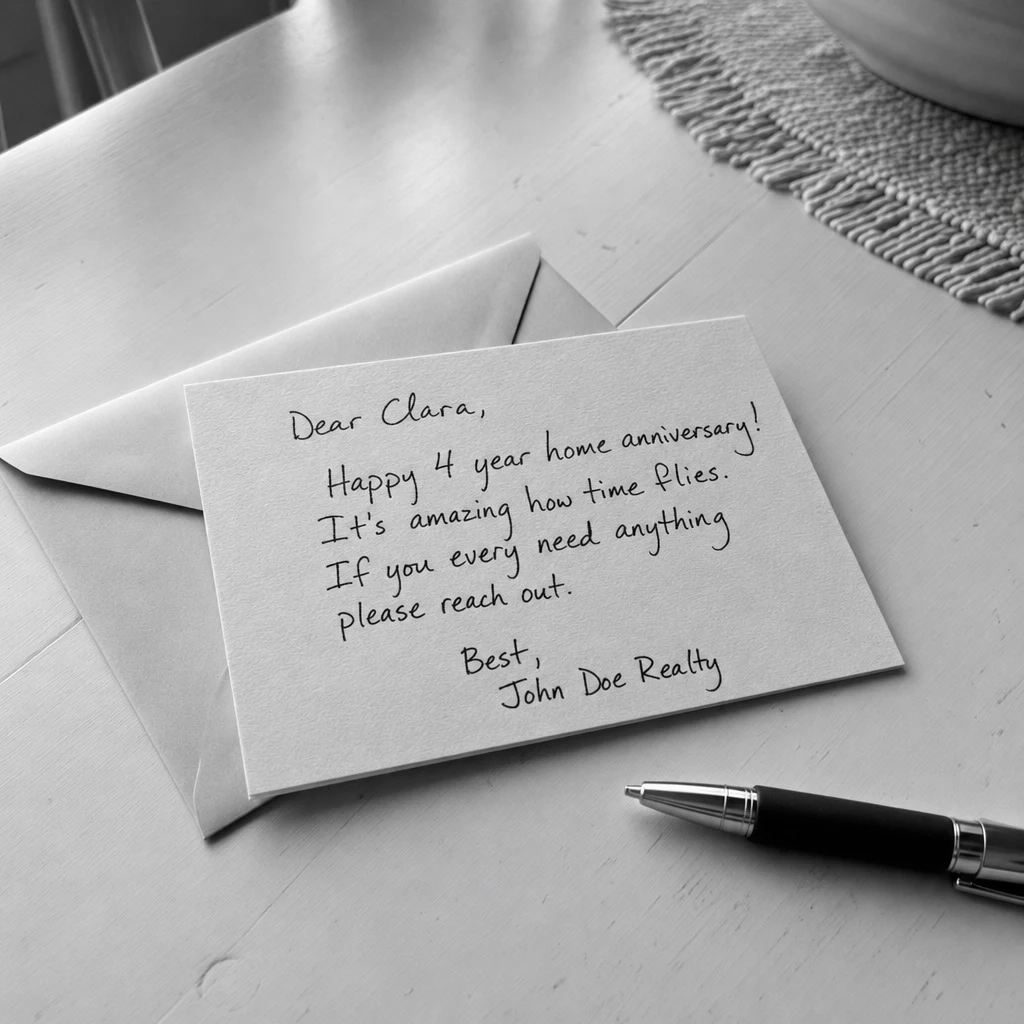 Dear Clara,
Happy 4 year home anniversary!
It's amazing how time flies.
If you every need anything
please reach out.
Best,
John Doe Realty